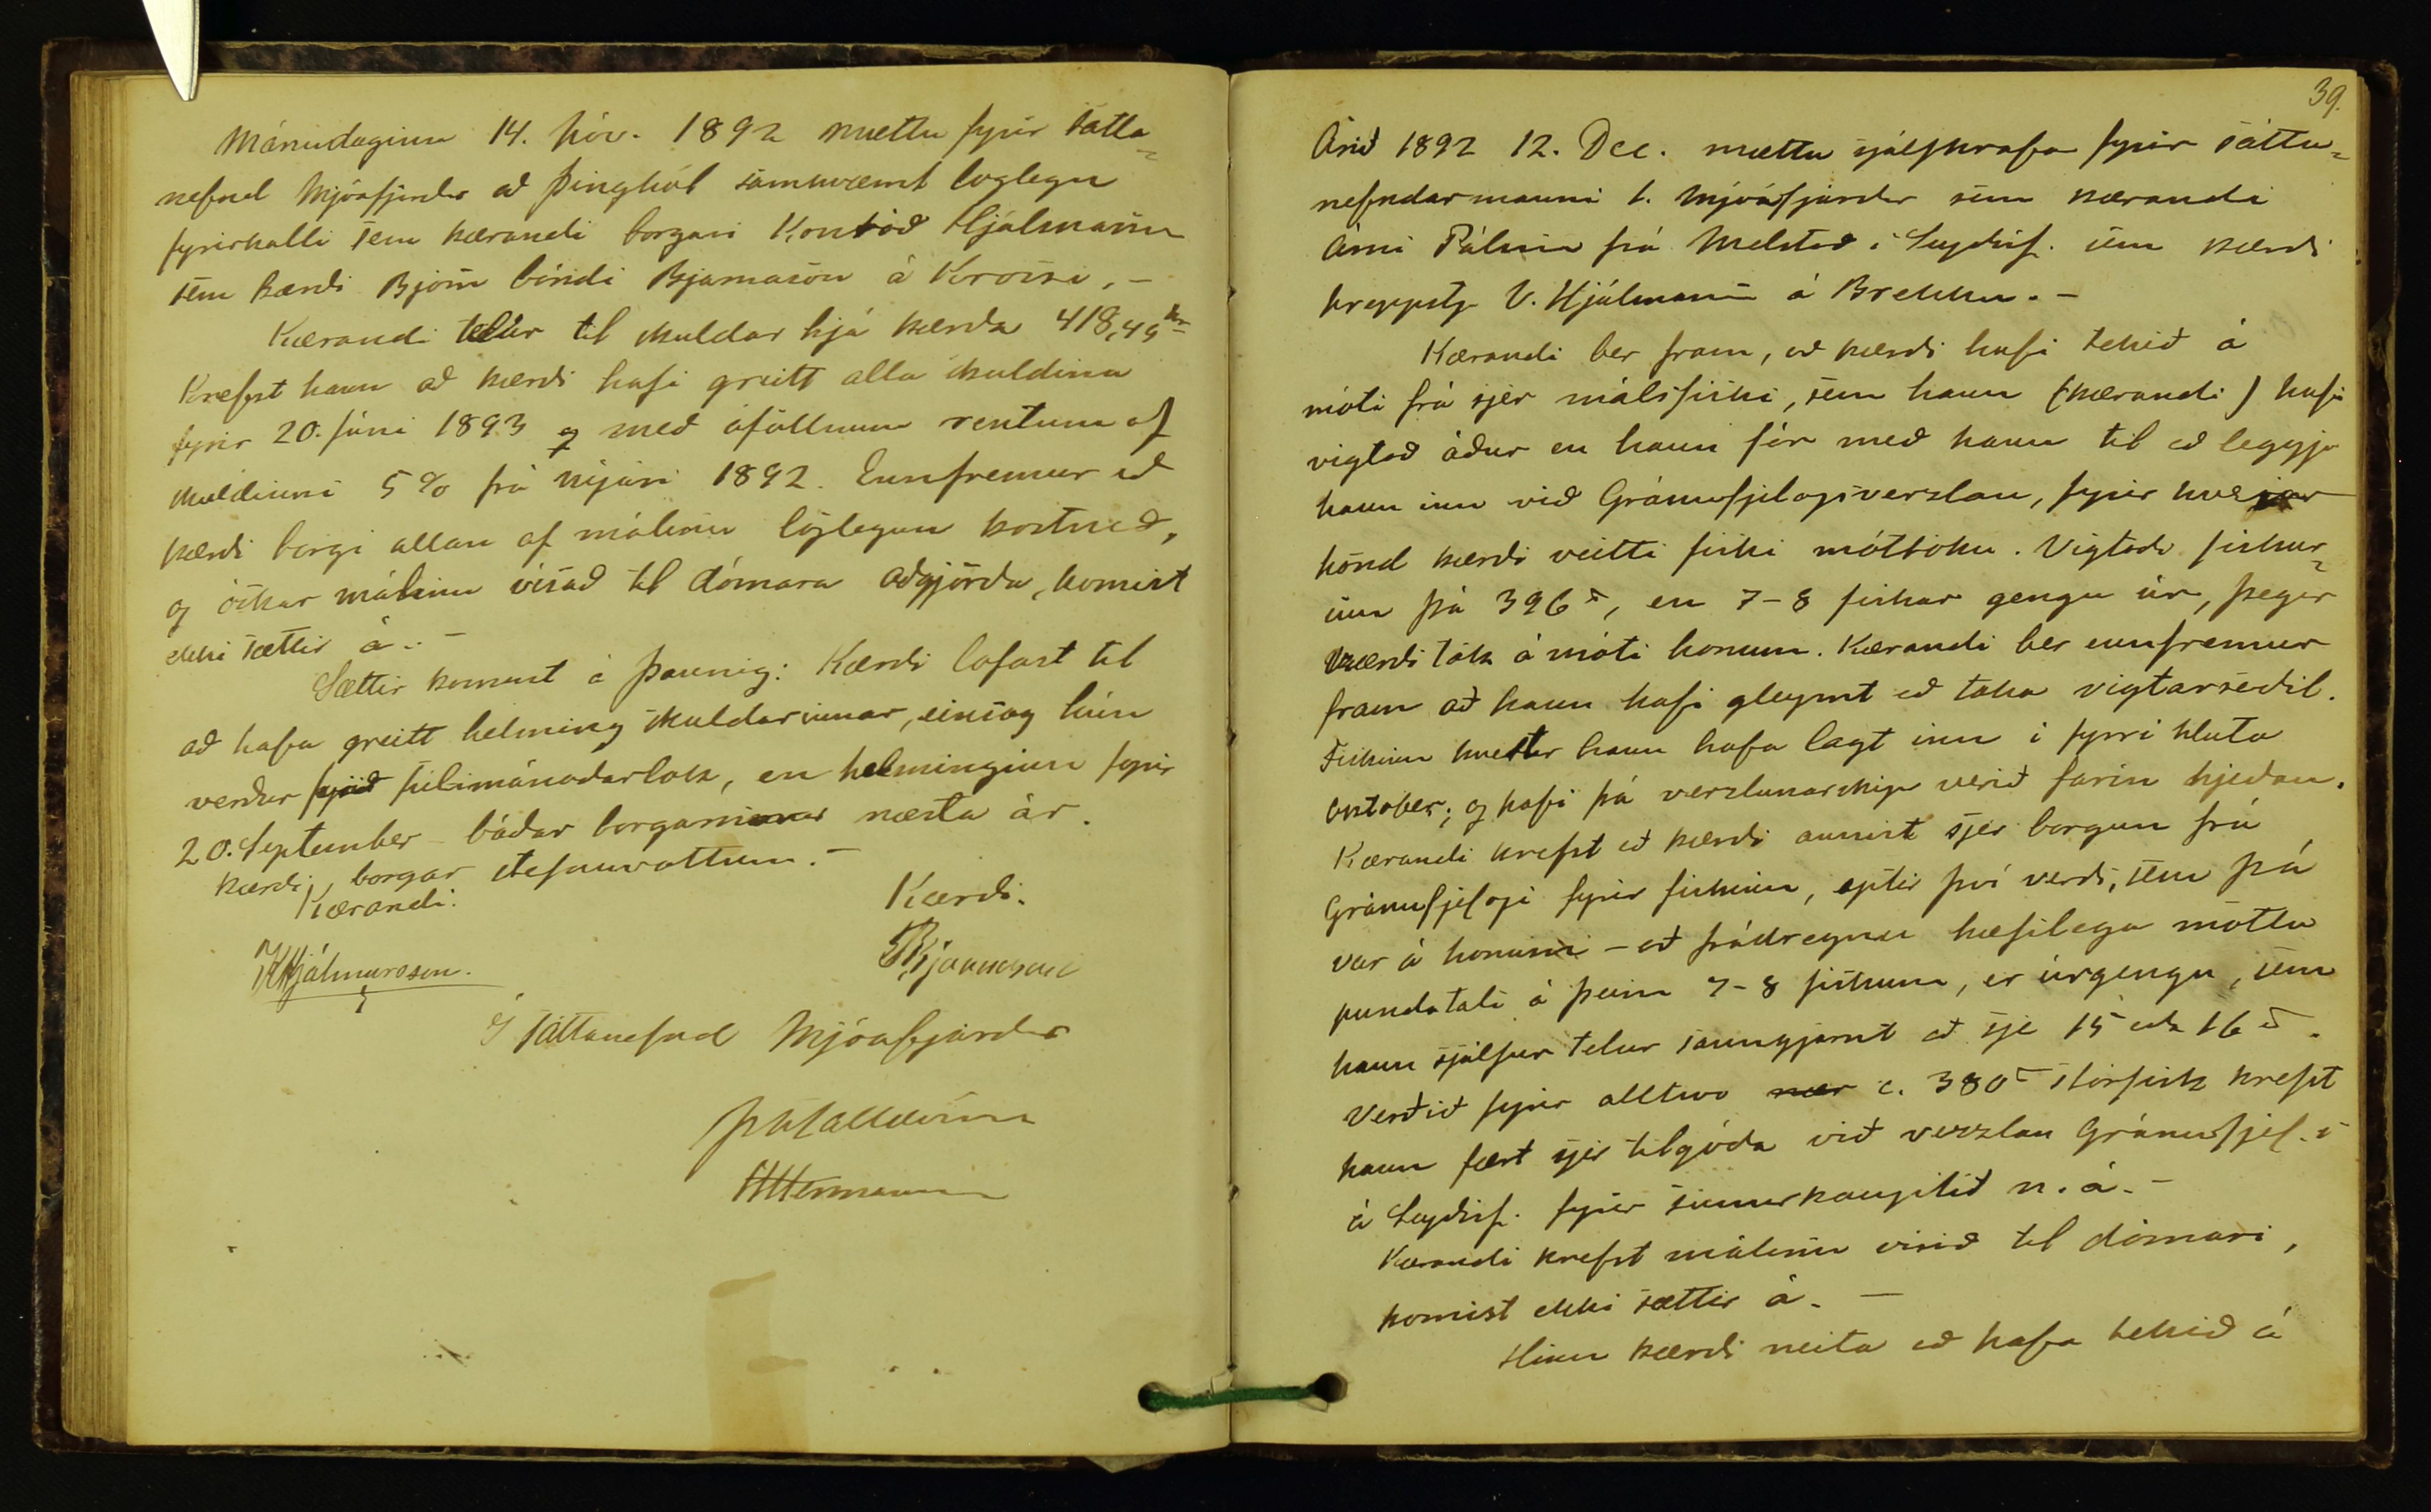 Mánudaginn 14. Nóv. 1892 mættu fyrir sátta-
nefnd Mjóafjarðar að Þinghól samkvæmt loglegu
fyrirkalli sem kærandi borgari Konráð Hjálmarsson
sem kærði Björn bóndi Bjarnason á Króisi. -
Kærandi telur til skuldar hjá kærða 418,45 kr
Krefst hann að kærði hafi greitt alla skuldina
fyrir 20. Júni 1893 og með áföllnum rentum af
skuldinni 5% frá nýjári 1892. Ennfremur að
kærði borgi allan af málinu löglegan kostnað,
og óskar málinu vísað til dómara aðgjörða, komist
ekki sættir á. -
Sættir komust á þannig: Kærði lofast til
að hafa greitt helming skuldarinnar, einsog hún
verður fyrir júlimánaðarlok, en helminginn fyrir
20. September - báðar borganirnar næsta ár.
Kærði borgar stefnuvottum. -
Kærandi.
Kærði.
KHjálmarsson.
BBjarnason
Í sáttanefnd Mjóafjarðar
HHermannsson
39.
Árið 1892 12. Dec. mættu sjálfkrafa fyrir sáttu-
nefndarmanni í Mjóafjarðar sem kærandi
Árni Pálsson frá Melstað í Seyðisf. sem kærði
hreppstj. V. Hjálmarsson á Brekku. -
Kærandi ber fram, að kærði hafi tekið á
móti frá sjer málsfiski, sem hann (kærandi) hafi
vigtað áður en hann fór með hann til að leggja
hann inn við Gránufjelagsverzlan, fyrir hverjar
hönd kærði veitti fiski móttöku. Vigtaði fiskur-
inn þá 396 ℔, en 7-8 fiskar gengu úr, þegar
kærði tók á móti honum. Kærandi ber ennfremur
fram að hann hafi gleymt að taka vigtarseðil.
Fiskinn kveður hann hafa lagt inn í fyrri hluta
October; og hafi þá verzlunarskip verið farin hjeðan.
Kærandi krefst að kærði annist sjer borgun frá
Gránufjelagi fyrir fiskinn, eptir því verði, sem þá
var á honum - að frádregnu hæfilegu
pundatali á þeim 7-8 fiskum, er úrgengu, sem
hann sjálfur telur sanngjarnt að sje 15 eða 16 ℔.
Verðið fyrir alltsvo c. 380 ℔ stórfisk krefst
hann fært sjer tilgóða við verzlan Gránufjel.
á Seyðisf. fyrir sumarkauptíð n. á. -
Kærandi krefst málinu vísað til dómara,
komist ekki sættir á. -
Hinn kærði neita að hafa tekið á